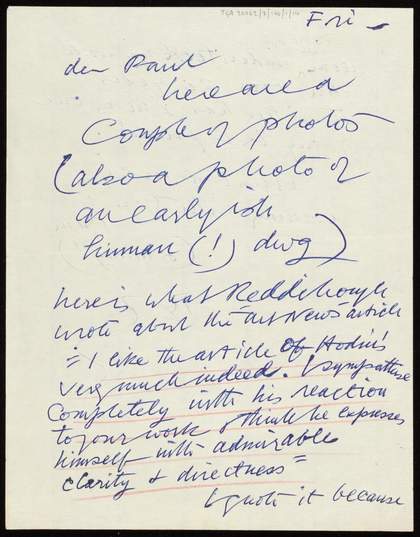 Fri -
dear Paul
here are a
Couple of photos
(also a photo of
an earlyish
human (!) dwg)
here is what Reddihough
wrote about the Art News article
= I like the article of Hodin's
very much indeed. I sympathise
completely with his reaction
to your work & think he expresses
himself with admirable
clarity & directness =
I quote it because